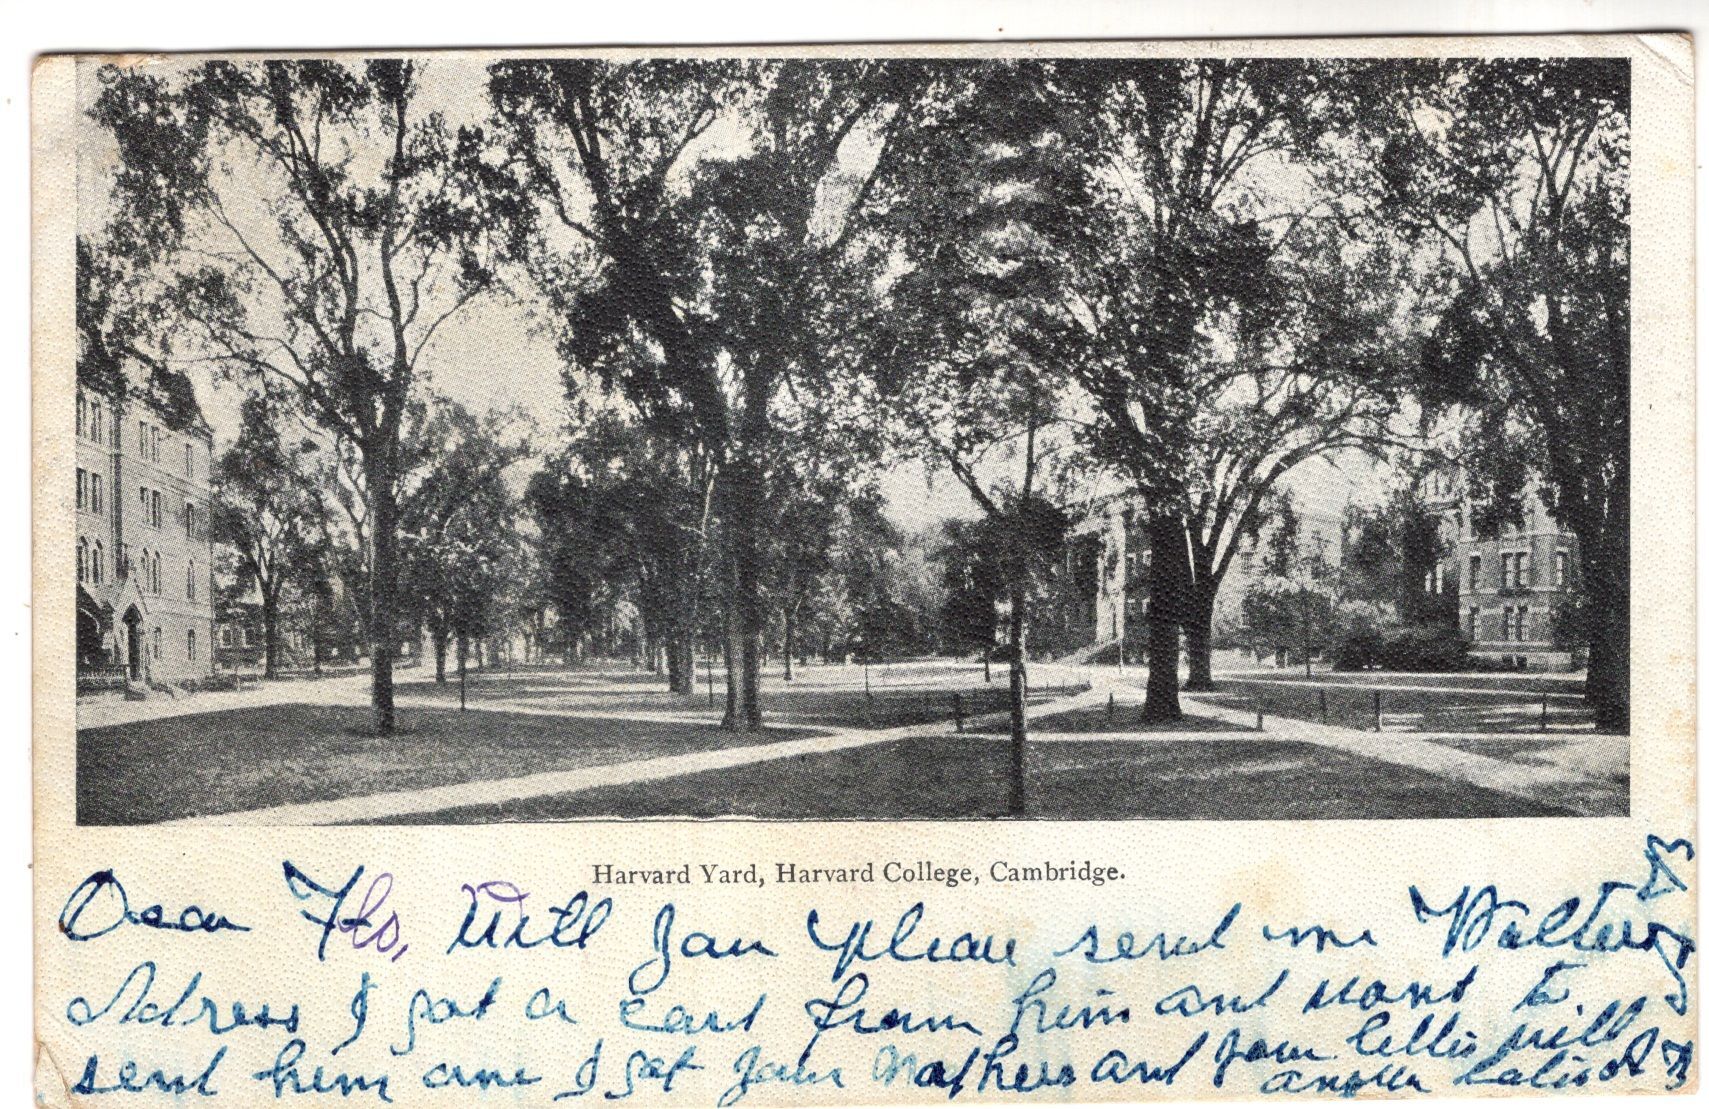 Harvard Yard, Harvard College, Cambridge.
Dear Flo, Will you please send me Walters
Adress I got a card from him and want to
send him one I got your Mothers and your letter will
answer later